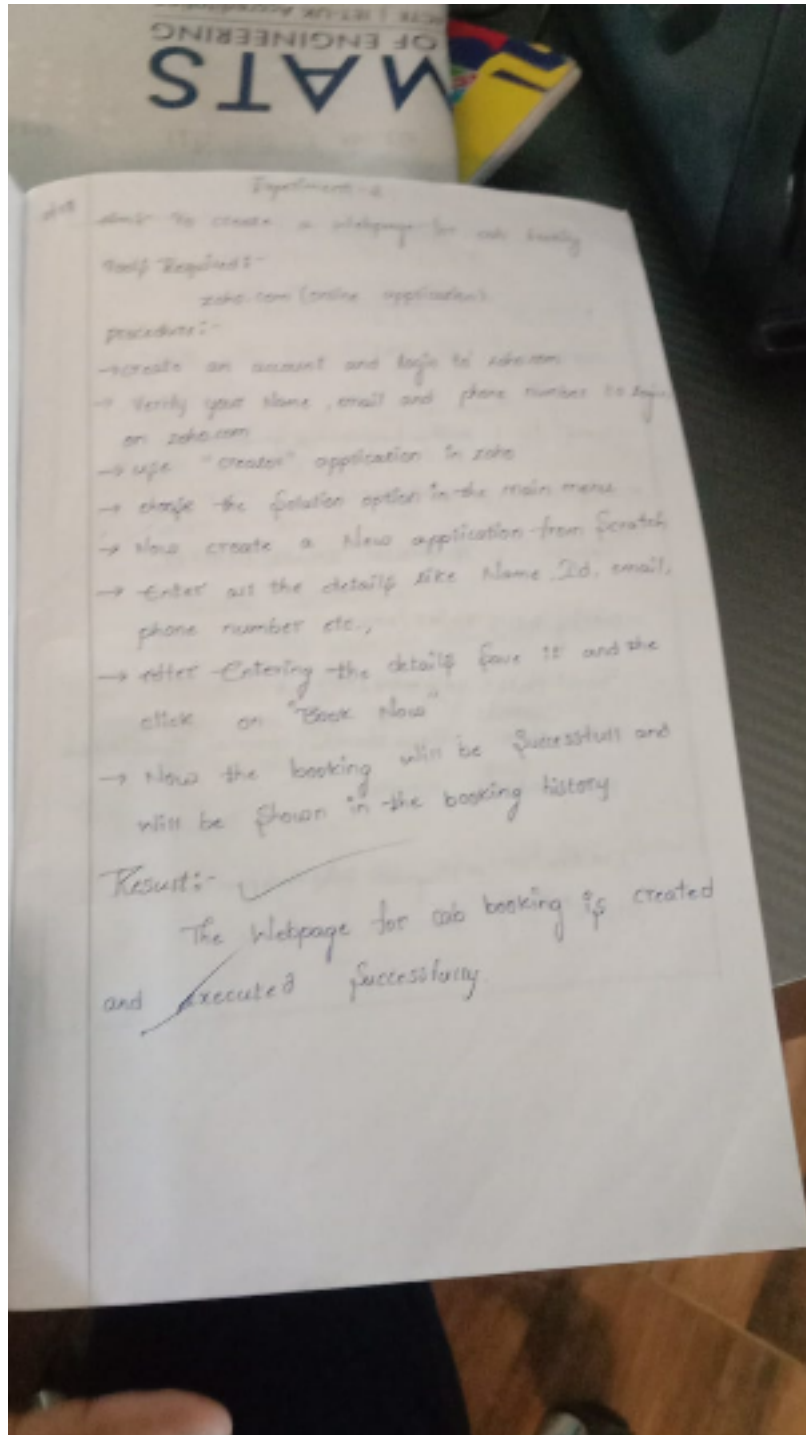 OF ENGINEERING
MATS
Experiment-2
Aim:- To create a Webpage for cab booking
Tools Required:-
zoho.com (online application).
procedure:-
→create an account and login to zoho.com
→ Verify your Name, email and phone number to login
on zoho.com
→ use "creator" application in zoho
→ the Solution option in the main menu
→ Now create a New application from Scratch
→ Enter all the details like Name, Id, email,
phone number etc.,
→ After Entering the details Save it and the
click on "Book Now"
→ Now the booking will be Successfull and
will be Shown in the booking history
Result:-
The Webpage for cab booking is created
and executed Successfully.